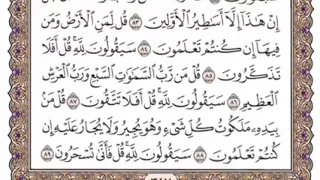 إِنْ هَٰذَا إِلَّا أَسَاطِيرُ الْأَوَّلِينَ ٨٣ قُل لِّمَنِ الْأَرْضُ وَمَن
فِيهَا إِن كُنتُمْ تَعْلَمُونَ ٨٤ سَيَقُولُونَ لِلَّهِ قُلْ أَفَلَا
تَذَكَّرُونَ ٨٥ قُلْ مَن رَّبُّ السَّمَاوَاتِ السَّبْعِ وَرَبُّ الْعَرْشِ
الْعَظِيمِ ٨٦ سَيَقُولُونَ لِلَّهِ قُلْ أَفَلَا تَتَّقُونَ ٨٧ قُلْ مَن
بِيَدِهِ مَلَكُوتُ كُلِّ شَيْءٍ وَهُوَ يُجِيرُ وَلَا يُجَارُ عَلَيْهِ إِن
كُنتُمْ تَعْلَمُونَ ٨٨ سَيَقُولُونَ لِلَّهِ قُلْ فَأَنَّىٰ تُسْحَرُونَ ٨٩